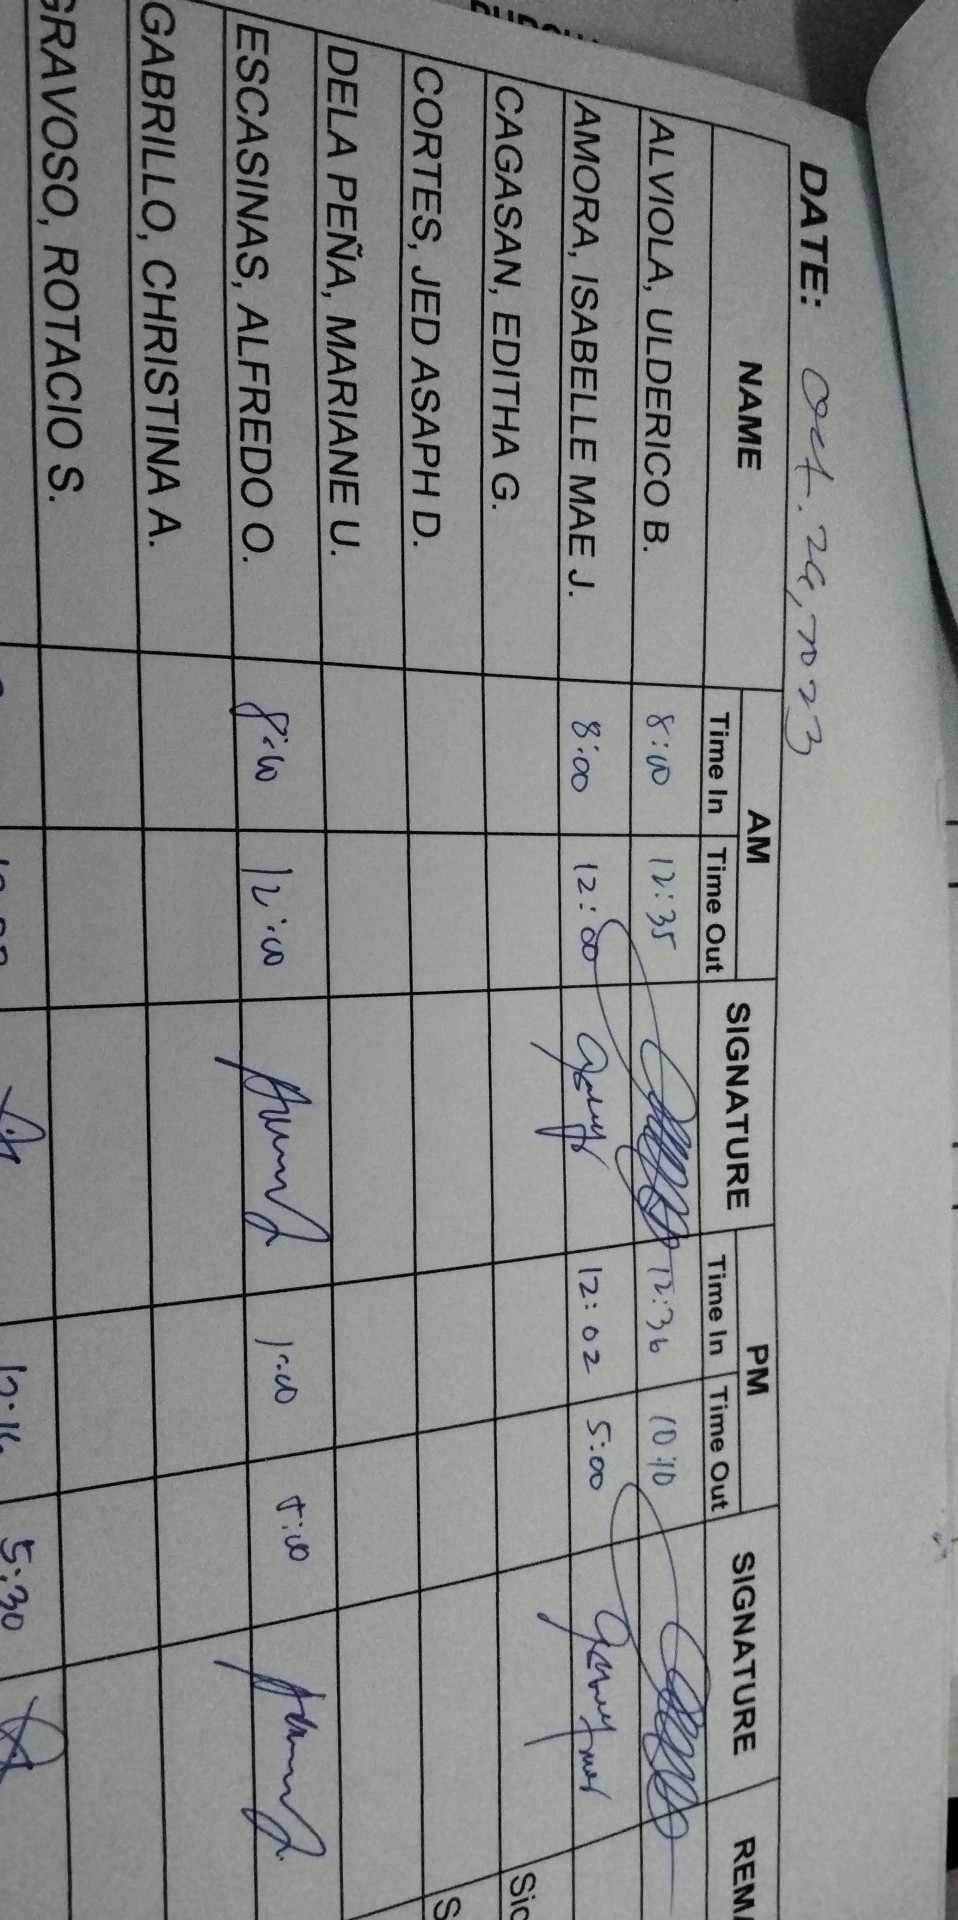 DATE: Oct. 29, 2023
NAME AM SIGNATURE PM SIGNATURE
Time In Time Out Time In Time Out
ALVIOLA, ULDERICO B. 8:00 12:35 12:36 10:10
AMORA, ISABELLE MAE J. 8:00 12:00 12:02 5:00
CAGASAN, EDITHA G.
CORTES, JED ASAPH D.
DELA PEÑA, MARIANE U.
ESCASINAS, ALFREDO O. 8:00 12:00 1:00 5:00
GABRILLO, CHRISTINA A.
GRAVOSO, ROTACIO S. 5:30